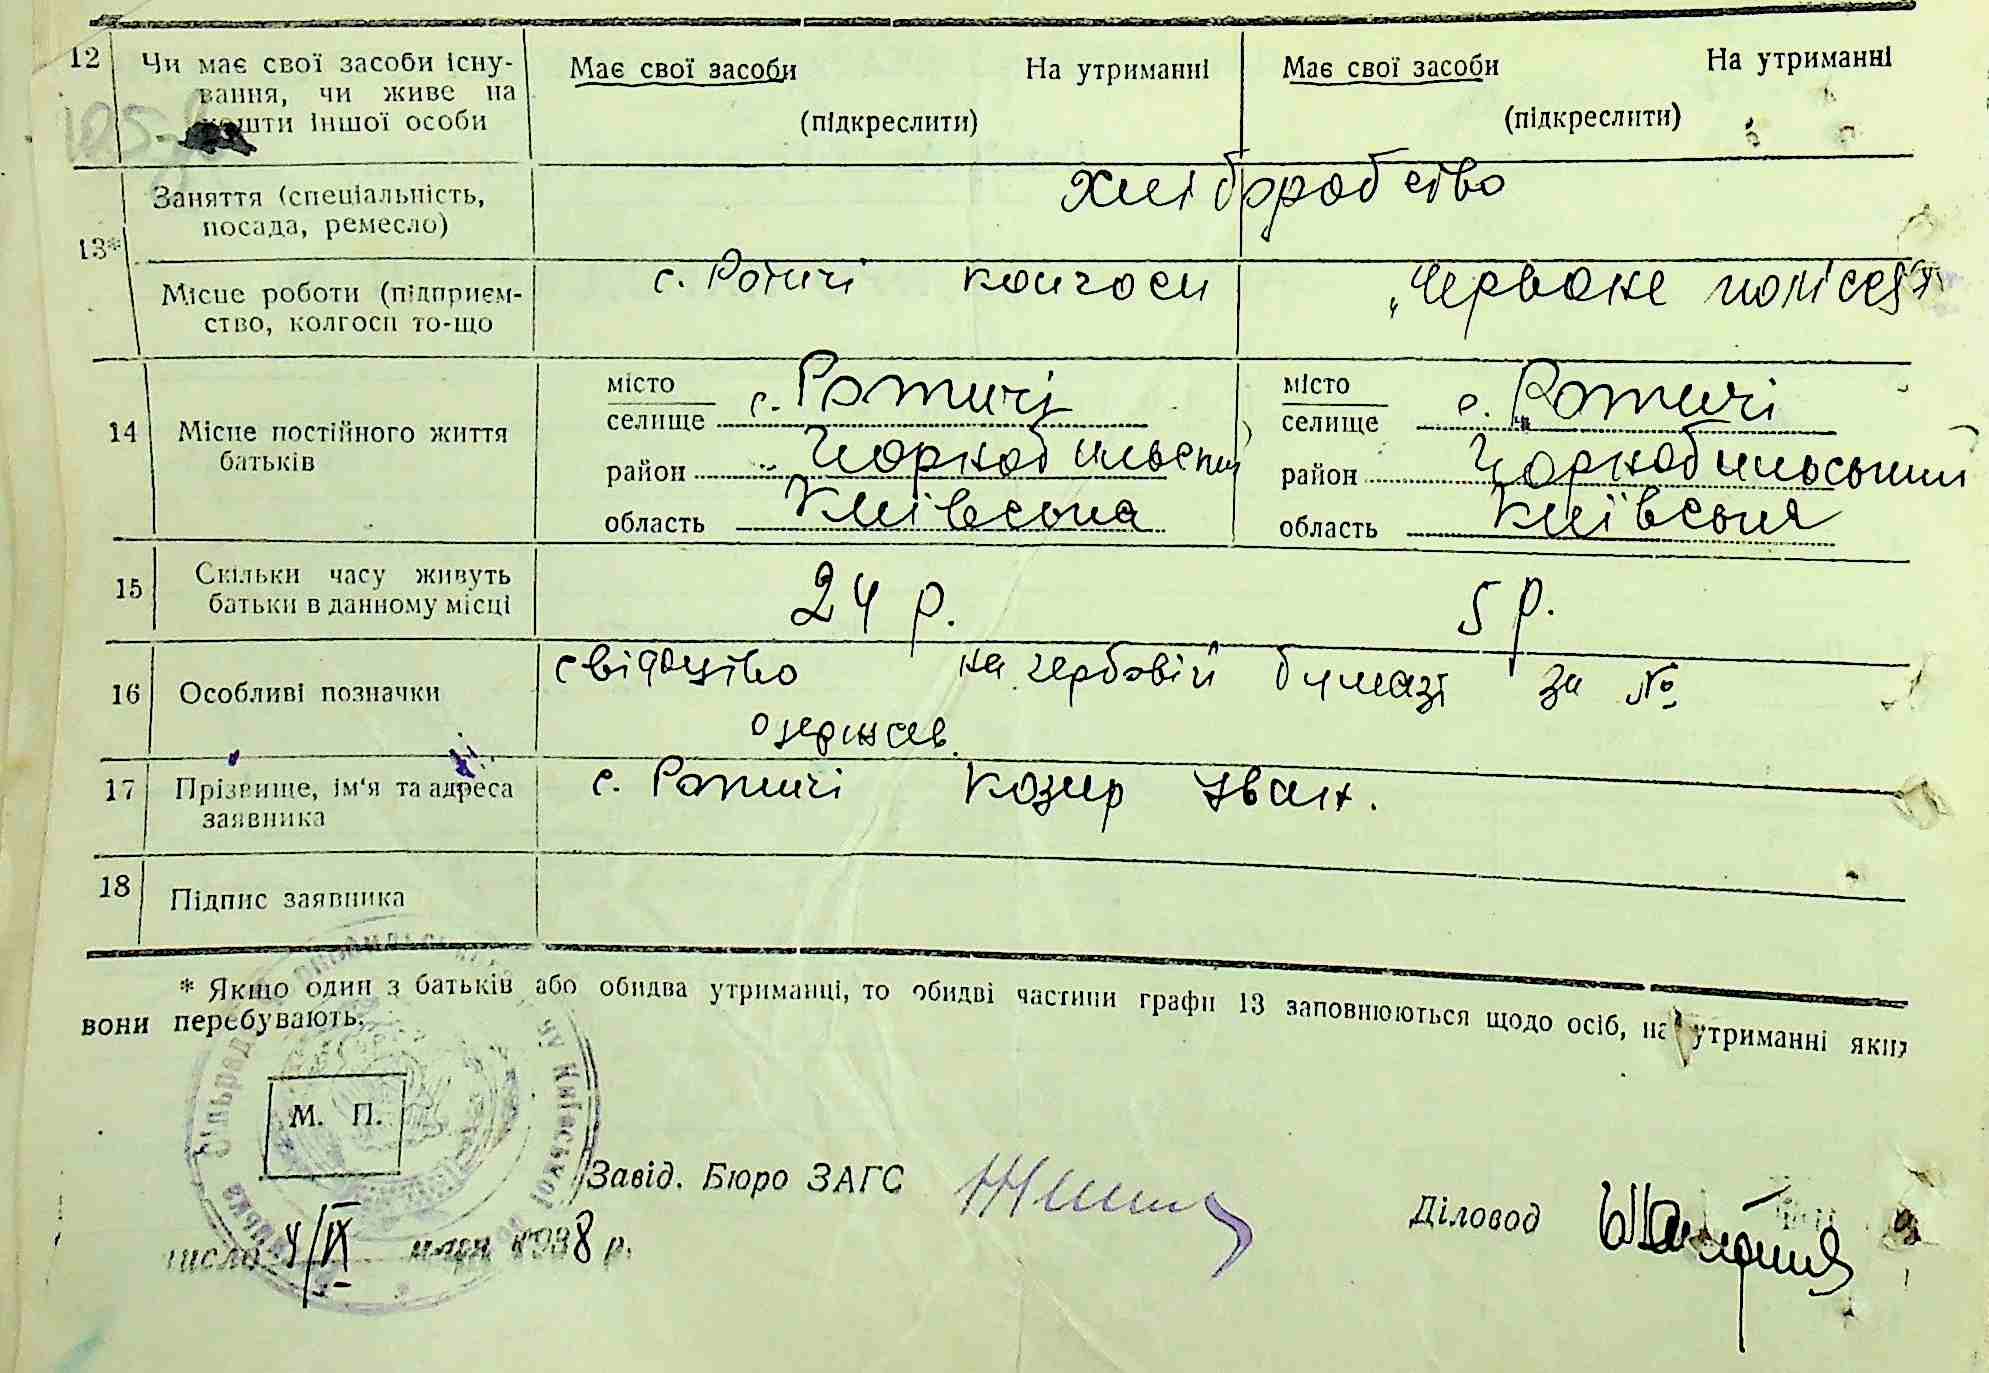 12 Чи має свої засоби існу- Має свої засоби На утриманні Має свої засоби На утриманні
вання, чи живе на
кошти іншої особи (підкреслити) (підкреслити)
Заняття (спеціальність, Хлібробство
посада, ремесло)
13*
Місце роботи (підприєм- с. Ротичі колгосп „Червоне полісся"
ство, колгосп то-що
місто с. Ротичі місто с. Ротичі
селище селище
14 Місце постійного життя
батьків
район Чорнобильський район Чорнобильський
область Київська область Київська
15 Скільки часу живуть 24 р. 5 р.
батьки в данному місці
16 Особливі позначки свідоцтво на гербовій бумазі за №
одержав.
17 Прізвище, ім'я та адреса с. Ротичі Козир Іван.
заявника
18 Підпис заявника
* Якщо один з батьків або обидва утриманці, то обидві частини графи 13 заповнюються щодо осіб, на утриманні яких
вони перебувають.
М. П.
Завід. Бюро ЗАГС
Діловод
число 4/IX 1938 р.